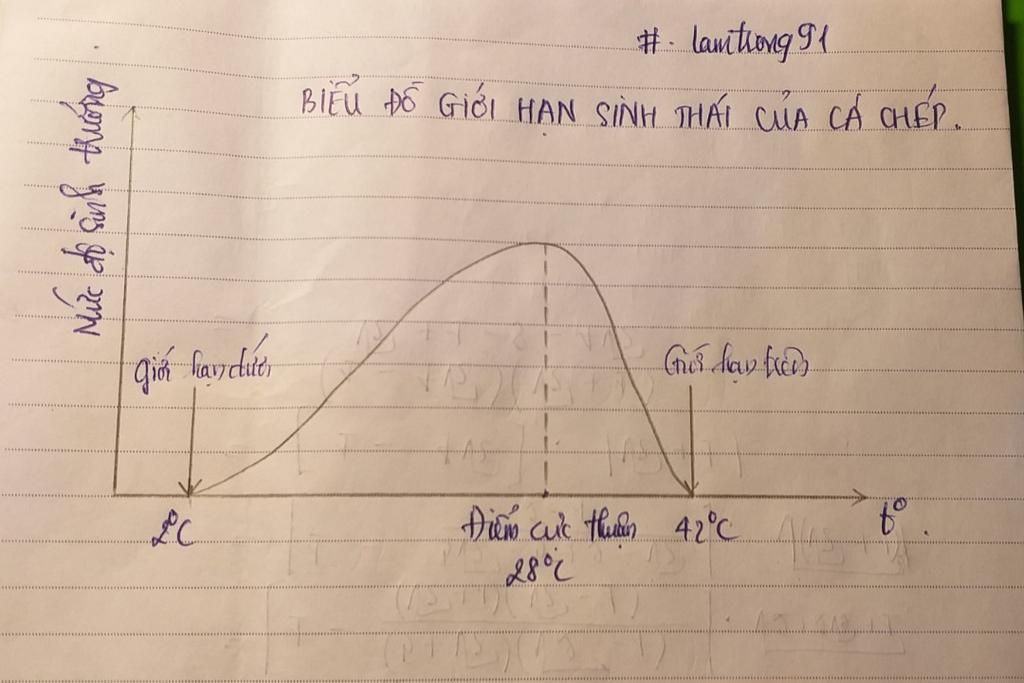 #. lamtrong91
BIỂU ĐỒ GIỚI HẠN SINH THÁI CỦA CÁ CHÉP.
Mức độ sinh trưởng
Giới hạn dưới
Giới hạn trên
2°C
Điểm cực thuận
28°C
42°C
t°.